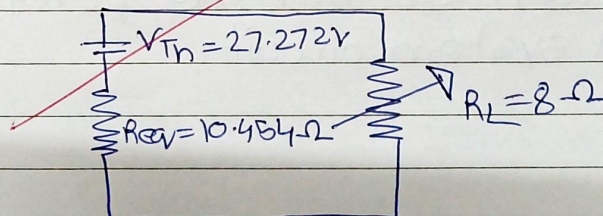 V_Th = 27.272V
Req = 10.454Ω
R_L = 8 Ω